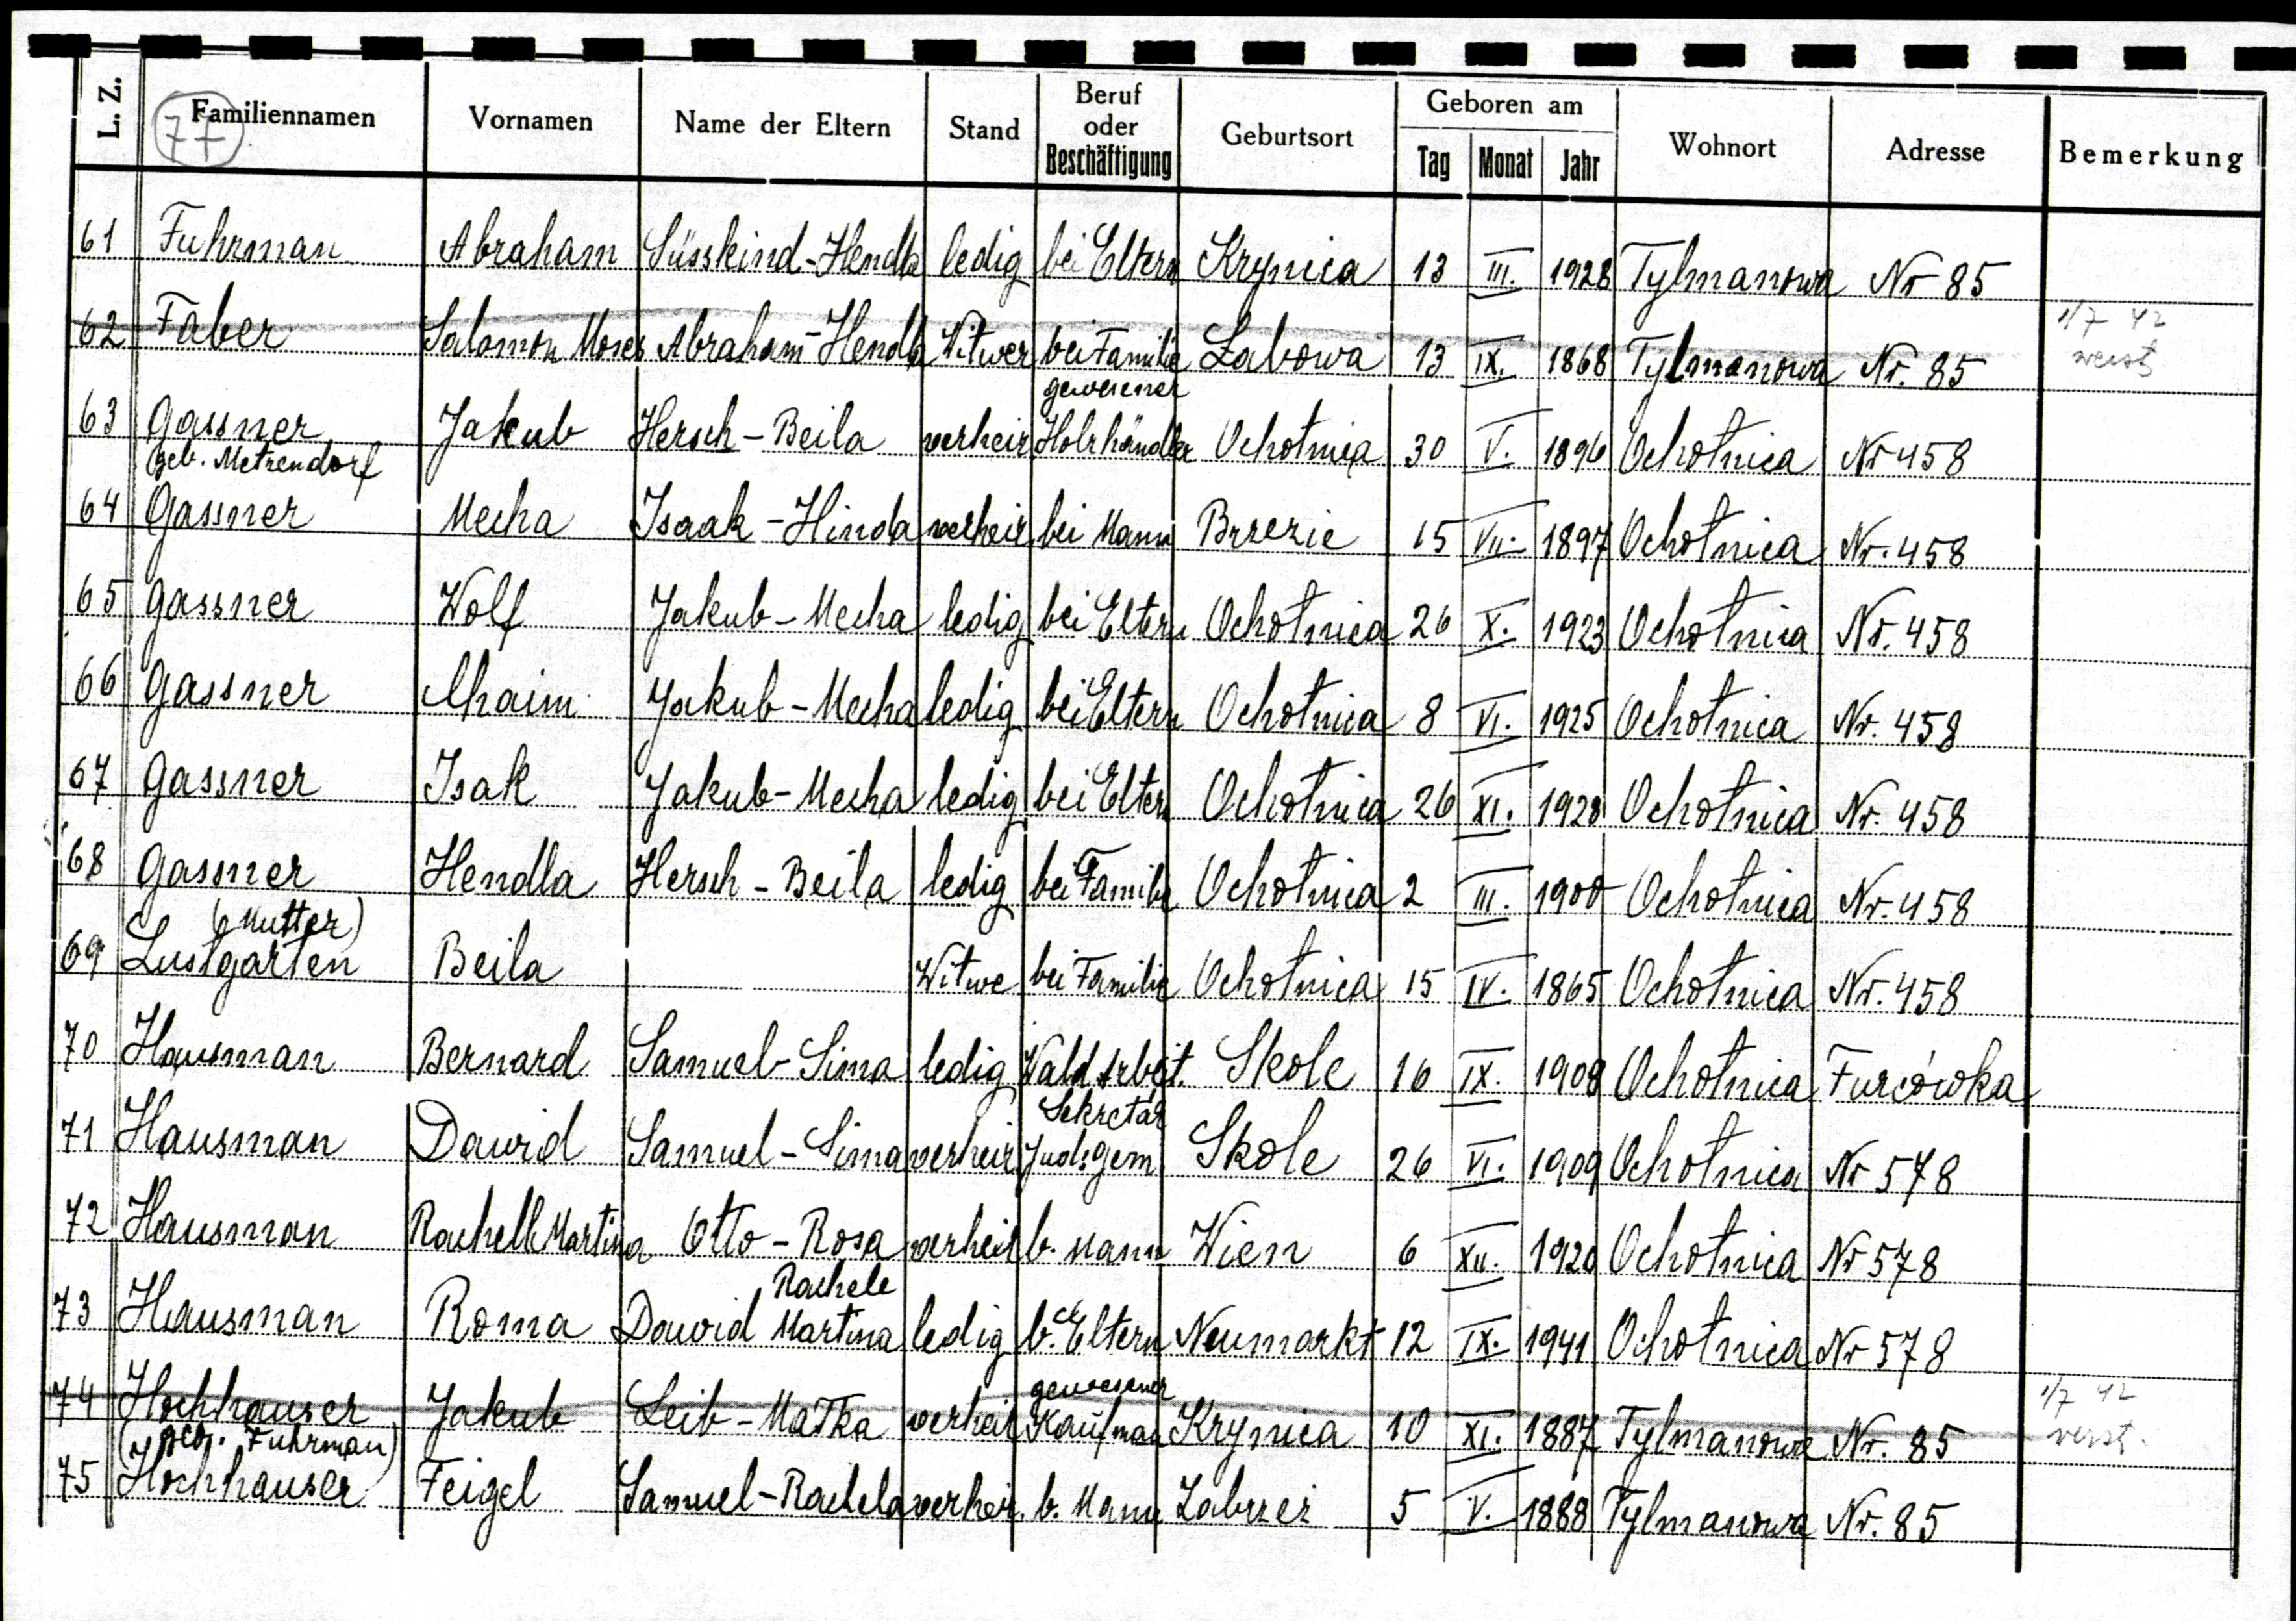 L. Z. Familiennamen Vornamen Name der Eltern Stand Beruf oder Beschäftigung Geburtsort Geboren am Tag Monat Jahr Wohnort Adresse Bemerkung
77
61 Fuhrman Abraham Süsskind-Hendla ledig bei Eltern Krynica 13 III. 1928 Tylmanowa Nr 85
62 Faber Salomon Moses Abraham-Hendla Witwer bei Familie Łabowa 13 IX. 1868 Tylmanowa Nr. 85 1/7 42
gewesener
63 Gassner Jakub Hersch-Beila verheir. Holzhändler Ochotnica 30 V. 1896 Ochotnica Nr 458
geb. Metzendorf
64 Gassner Mecha Isaak-Hinda verheir. bei Mann Brzezie 15 VII. 1897 Ochotnica Nr. 458
65 Gassner Wolf Jakub-Mecha ledig bei Eltern Ochotnica 26 X. 1923 Ochotnica Nr. 458
66 Gassner Chaim Jakub-Mecha ledig bei Eltern Ochotnica 8 VI. 1925 Ochotnica Nr. 458
67 Gassner Isak Jakub-Mecha ledig bei Eltern Ochotnica 26 XI. 1928 Ochotnica Nr. 458
68 Gassner Hendla Hersch-Beila ledig bei Familie Ochotnica 2 III. 1900 Ochotnica Nr. 458
(Mutter)
69 Lustgarten Beila Witwe bei Familie Ochotnica 15 IV. 1865 Ochotnica Nr. 458
70 Hausman Bernard Samuel-Sima ledig Wald Arbeit. Skole 16 IX. 1908 Ochotnica Furcówka
Sekretär
71 Hausman Dawid Samuel-Sima verheir. Jud. gem. Skole 26 VI. 1909 Ochotnica Nr 578
72 Hausman Rachell Martina Otto-Rosa verheir. b. Mann Wien 6 XII. 1920 Ochotnica Nr 578
Rachele
73 Hausman Roma Dawid Martina ledig b. Eltern Neumarkt 12 IX. 1941 Ochotnica Nr 578
gewesener
74 Hochhauser Jakub Leib-Matka verheir. Kaufman Krynica 10 XI. 1887 Tylmanowa Nr. 85 1/7 42
(geb. Fuhrman)
75 Hochhauser Feigel Samuel-Rachela verheir. b. Mann Zabrzeż 5 V. 1888 Tylmanowa Nr. 85